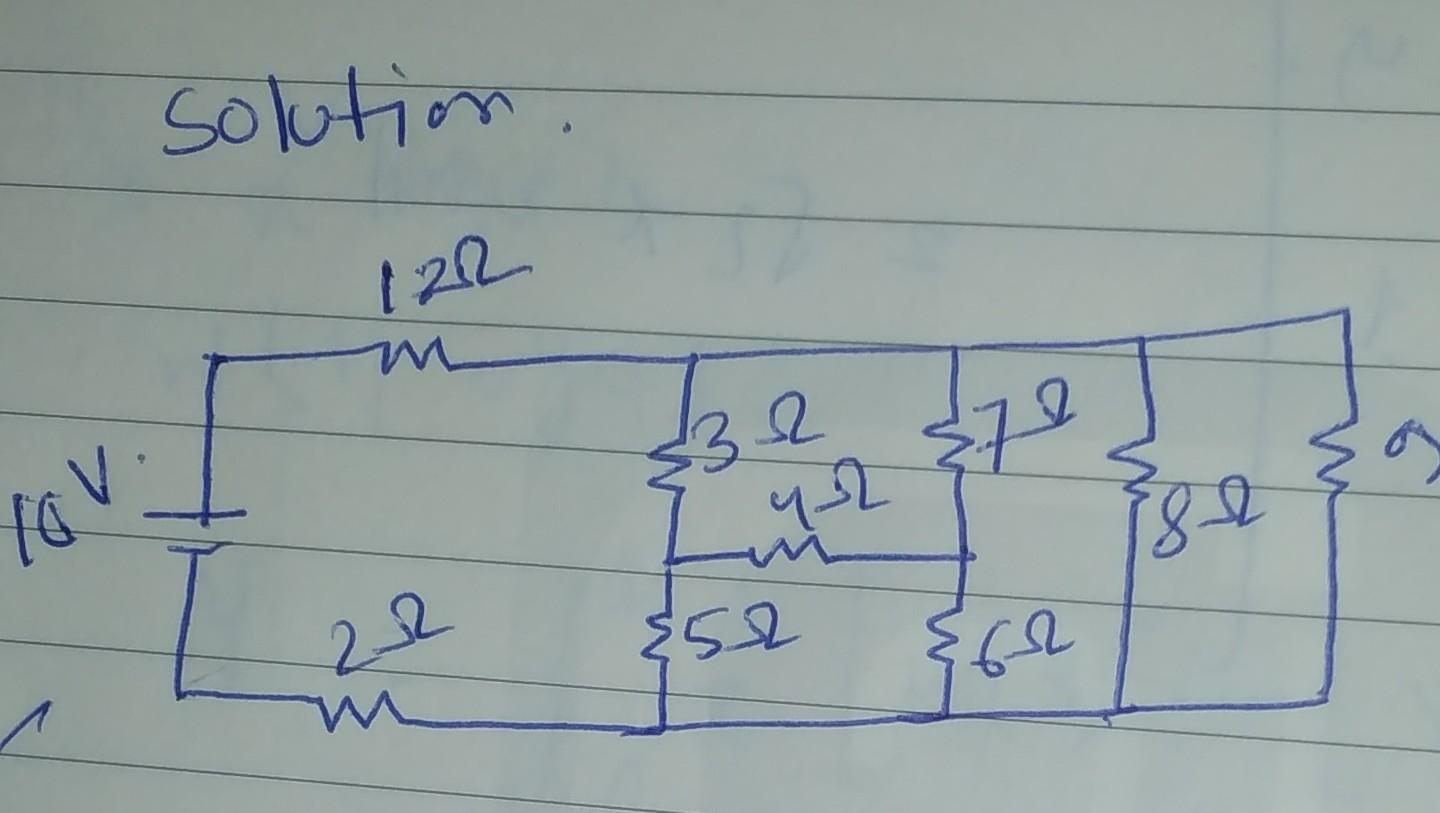 Solution.
12Ω
10V
3Ω
7Ω
4Ω
8Ω
9
2Ω
5Ω
6Ω